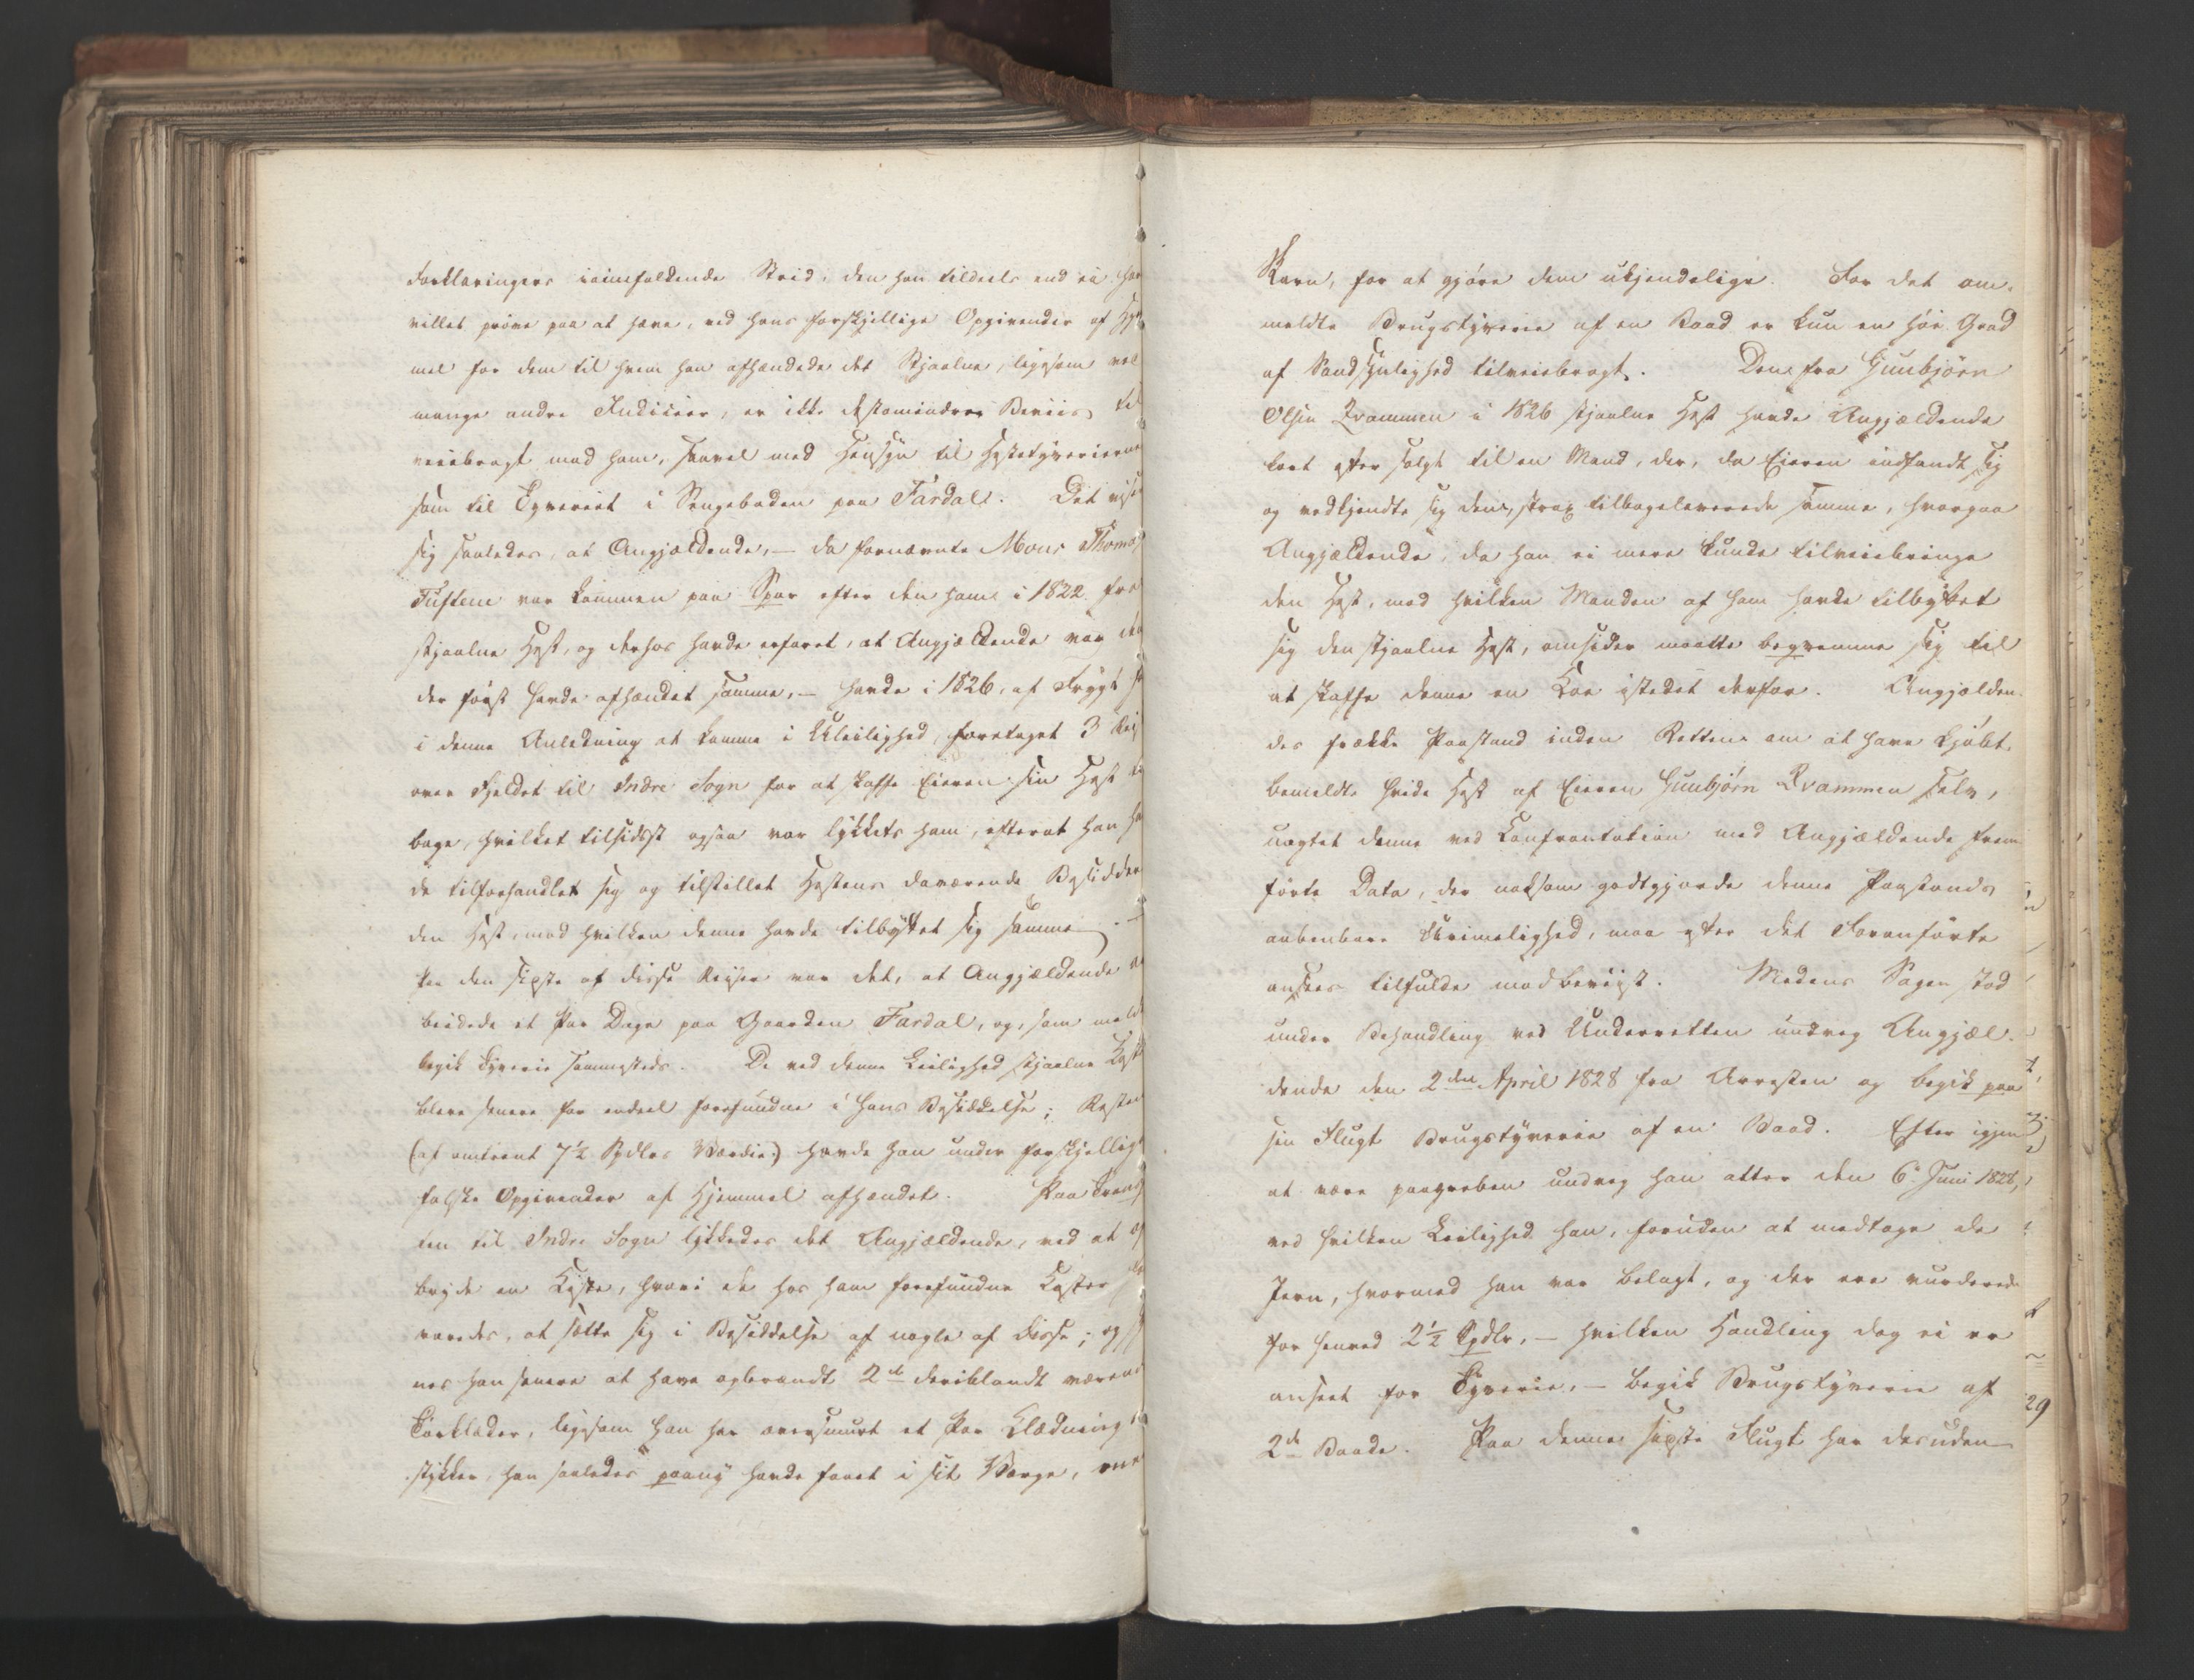 Forklaringers iøinefaldende Strid, den han tildeels end ei har
villet prøve paa at hæve, ved hans forskjellige Opgivender af Hjem
mel for dem til hvem han afhændede det Stjaalne, ligesom vel
mange andre Indicier, er ikke destomindre Beviis til
veiebragt mod ham, saavel med Hensyn til Hestetyverierne
som til Tyveriet i Sengeboden paa Fardal. Det viser
sig saaledes, at Angjældende, – da fornævnte Mons Thomas
Tuftene var kommen paa Spor efter den ham i 1822 fra
stjaalne Hest, og derhos havde erfaret, at Angjældende var den
der først havde afhændet samme, – havde i 1826, af Frygt for
i denne Anledning at komme i Uleilighed, foretaget 3 Reis
over Fjeldet til Indre Sogn for at skaffe Eieren sin Hest til
bage, hvilket tilsidst ogsaa var lykkets ham, efterat han hav
de tilforhandlet sig og tilstillet Hestens daværende Besidder
den Hest, mod hvilken denne havde tilbyttet sig samme. –
Paa den sidste af disse Reiser var det, at Angjældende ar
beidede et Par Dage paa Gaarden Fardal, og, som meldt
begik Tyverie sammesteds. De ved denne Leilighed stjaalne Kost
bleve senere for endeel forefundne i hans Besiddelse; Resten
(af omtrent 7½ Spdlrs Værdie) havde han under forskjellige
falske Opgivender af Hjemmel afhændet. Paa Transp
ten til Indre Sogn lykkedes det Angjældende, ved at op
bryde en Kiste, hvori de hos ham forefundne Koster for
varedes, at sætte sig i Besiddelse af nogle af disse; og
nes han senere at have opbrændt 2de deriblandt værende
Tørklæder, ligesom han har oversmurt et Par Klædnings
stykker, han saaledes paany havde faaet i sit Værge, med
Skarn, for at gjøre dem ukjendelige. For det om-
meldte Brugstyverie af en Baad er kun en høi Grad
af Sandsynlighed tilveiebragt. Den fra Gunbjørn
Olsen Qvammen i 1826 stjaalne Hest havde Angjældende
kort efter solgt til en Mand, der, da Eieren indfandt sig
og vedkjendte sig den, strax tilbageleverede samme, hvorpaa
Angjældende, da han ei mere kunde tilveiebringe
den Hest, mod hvilken Manden af ham havde tilbyttet
sig den stjaalne Hest, omsider maatte beqvemme sig til
at skaffe denne en Koe istedet derfor. Angjælden-
des frække Paastand inden Retten om at have kjøbt
bemeldte hvide Hest af Eieren Gunbjørn Qvammen selv,
uagtet denne ved Confrontation med Angjældende frem
førte Data, der noksom godtgjorde denne Paastands
aabenbare Urimelighed, maa efter det Foranførte
ansees tilfulde modbeviist. Medens Sagen stod
under Behandling ved Underretten undveg Angjæl-
dende den 2den April 1828 fra Arresten og begik paa
sin Flugt Brugstyverie af en Baad. Efter igjen
at være paagreben undveg han atter den 6 Juni 1828,
ved hvilken Leilighed han, foruden at medtage de
Jern, hvormed han var belagt, og der ere vurderede
for henved 2½ Spdlr, – hvilken Handling dog ei er
anseet for Tyverie, – begik Brugstyverie af
2de Baade. Paa denne sidste Flugt har desuden
29